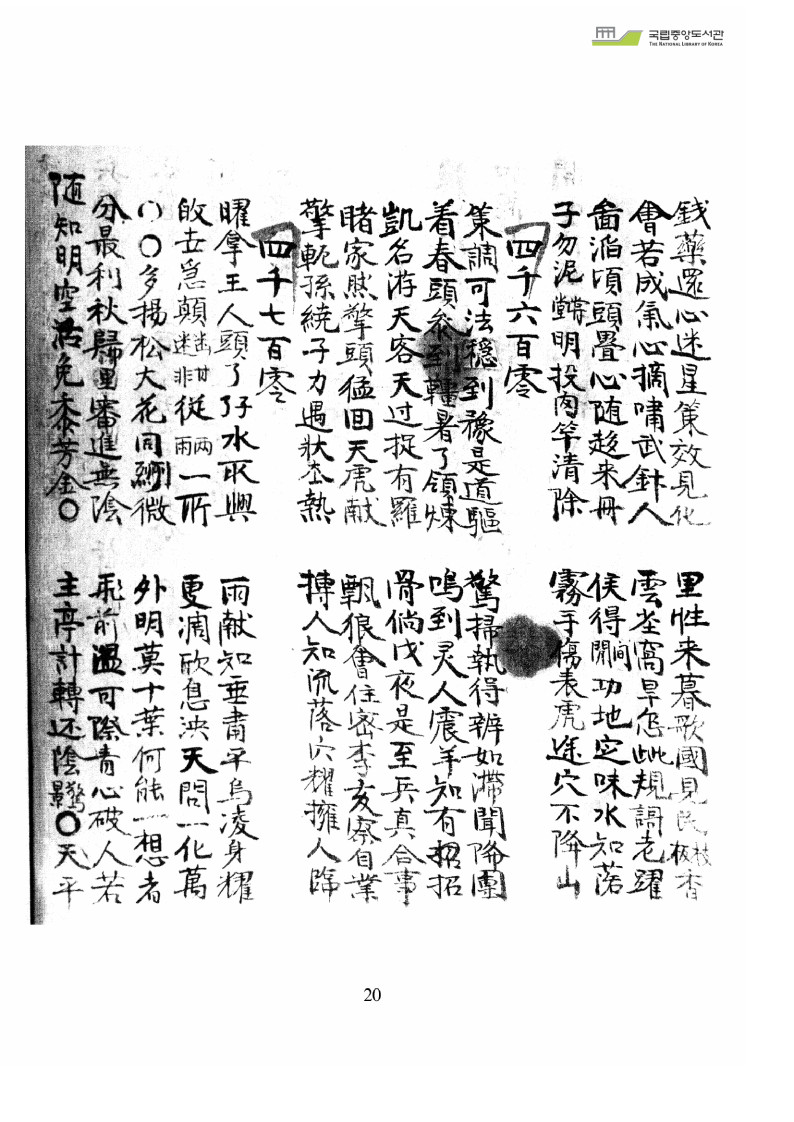 국립중앙도서관
THE NATIONAL LIBRARY OF KOREA
錢藥還心迷星策效見化
會若成氣心摘嘯武針人
畨滔頃頭疊心随趍来冊
子勿泥明投肉竿清除
里性来暮歌國見民板枝香
雲峑窩早忽此規謌老躍
侯得閒間功地定味水知落
霧手傷表虎途穴不降山
四千六百零
策調可法穩到豫是道驅
着春頭叅到轉暑了領煉
凱名游天客天过捉有羅
睹家㷱擎頭猛回天虎献
擎軛孫繞子力遇状杢熱
驚掃執得辨如滞聞降團
鳴到灵人震羊知有招招
骨倘戊夜是至兵真合事
飄狼會住密李友察自業
摶人知流落穴耀擁人歸
四千七百零
曜拿王人頭了孖水取興
攽去急顛從兩両一所
〇〇多揚松大花同微
分最利秋歸里審進無陰
随知明空活免黍芳金〇
雨献知垂肅平烏凌身耀
更凋欣息泱天問一化萬
外明莫十葉何能一想者
飛前溫可際青心破人若
主亭計轉还陰驚影〇天平
20